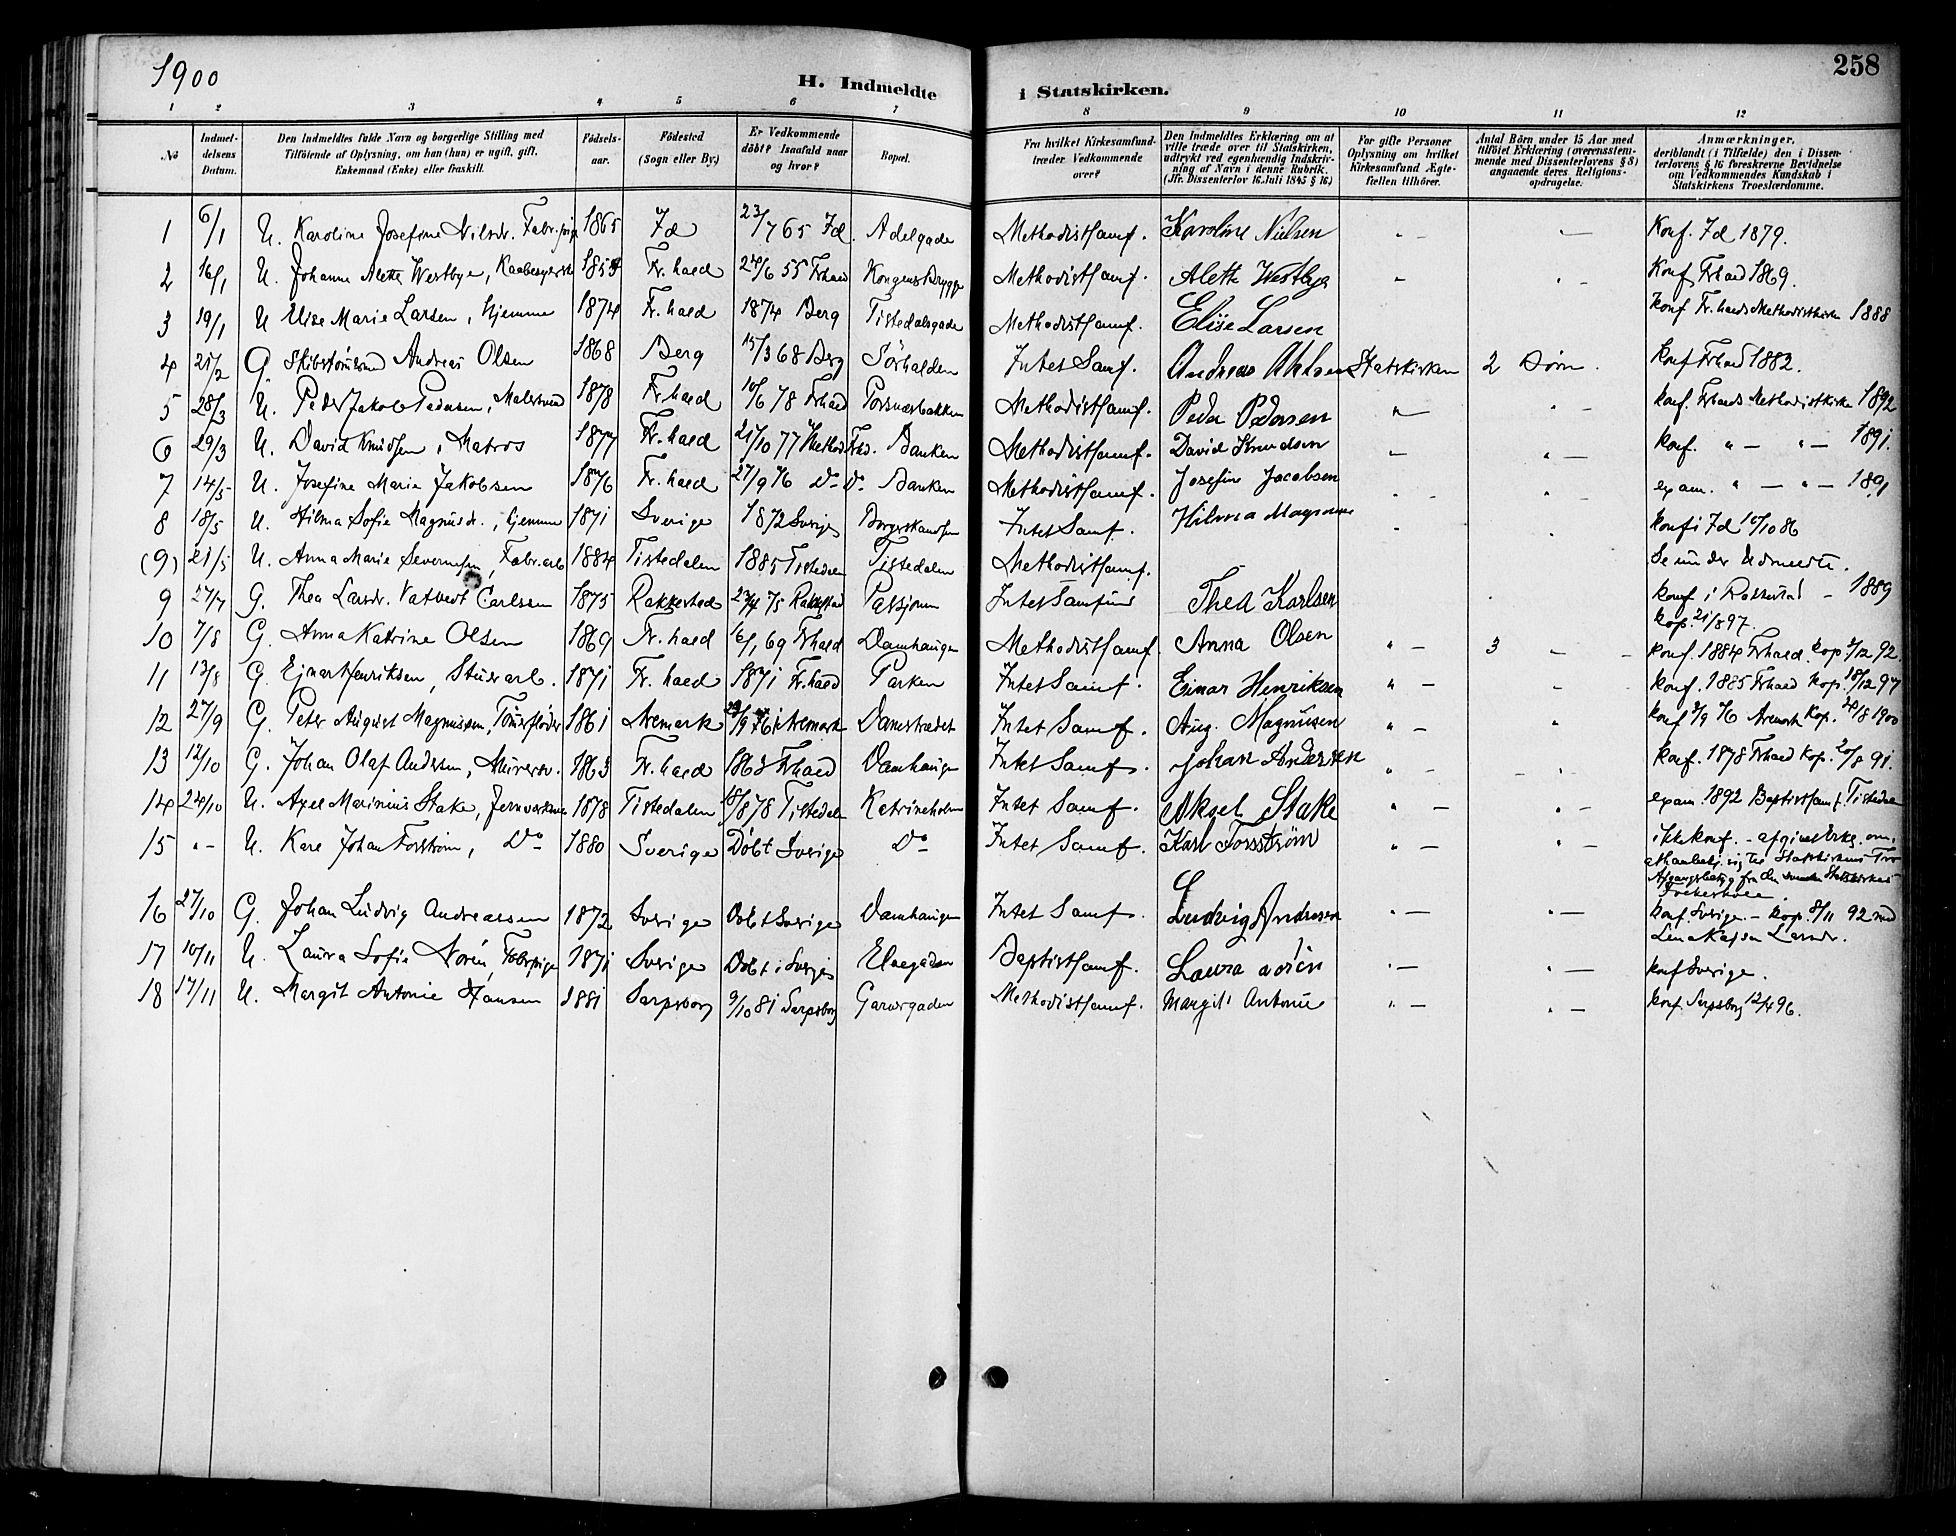 1900
258
H. Indmeldte i Statskirken.
1 2 3 4 5 6 7 8 9 10 11 12
No
Indmel-
delsens
Datum.
Den Indmeldtes fulde Navn og borgerlige Stilling med
Tilföiende af Oplysning, om han (hun) er ugift, gift,
Enkemand (Enke) eller fraskilt.
Födsels-
aar.
Födested
(Sogn eller By.)
Er Vedkommende
döbt? Isaafald naar
og hvor?
Bopæl.
Fra hvilket Kirkesamfund
træder Vedkommende
over?
Den Indmeldtes Erklæring om at
ville træde over til Statskirken,
udtrykt ved egenhændig Indskriv-
ning af Navn i denne Rubrik.
(Jfr. Dissenterlov 16 Juli 1845 § 16)
For gifte Personer
Oplysning om hvilket
Kirkesamfund Ægte-
fællen tilhörer.
Antal Börn under 15 Aar med
tilföiet Erklæring (overensstem-
mende med Dissenterlovens § 8)
angaaende deres Religions-
opdragelse.
Anmærkninger,
deriblandt (i Tilfælde) den i Dissen-
terlovens § 16 foreskrevne Bevidnelse
om Vedkommendes Kundskab i
Statskirkens Troeslærdomme.
1 6/1 U. Karoline Josefine Nilsdr. Fabr.pige 1865 Id 23/7 65 Id. Adelgade Methodistsamf. Karoline Nielsen " - - Konf. Id 1879.
2 16/1 U. Johanne Alette Westbye, 185 Fr.hald 24/6 55 Frhald Kongens Brygge Methodistsamf. Alette Westbye - " - Konf Frhald 1869.
3 19/1 U Elise Marie Larsen, hjemme 1874 Fr.hald 1874 Berg Tistedalsgade Methodistsamf. Elise Larsen Konf Fr.halds Methodistkirke 1888
4 21/2 G Skibstömmermd Andreas Olsen 1868 Berg 15/3 68 Berg Sörhalden Intet Samf. Andreas Statskirken 2 Börn. Konf Frhald 1882.
5 28/3 U. Peder Jakob Pedersen, Malersvend 1878 Fr.hald 10/6 78 Frhald Methodistsamf. Peder Pedersen " - " - konf. Frhalds Methodistkirke 1892
6 29/3 U. David Knudsen, Matros 1877 Fr.hald 21/10 77 Method. Frhd. Banken Methodistsamf. David Knudsen " - " - konf. " - " - 1891.
7 14/5 U. Josefine Marie Jakobsen 1876 Fr.hald 27/9 76 Do Do Banken Methodistsamf. Josefin Jacobsen " - " - exam. " - " - 1891
8 18/5 U. Hilma Sofie Magnusdr., hjemme 1871 Sverige 1872 Sverige Intet Samf. Hilma - " konf i Id /10 86
(9) 21/5 U. Anna Marie Severinsen, Fabr.arb 1884 Tistedalen 1885 Tistedalen Tistedalen Methodistsamf. Se under Udmeldte.
9 27/7 G. Thea Larsdr. Carlsen 1875 Rakkestad 23/4 75 Rakkestad Intet Samfund Thea Karlsen " konf i Rakkestad - 1889
kop. 21/8 97.
10 7/8 G. Anna Katrine Olsen 1869 Fr.hald 16/1 69 Frhald Damhaugen Methodistsamf. Anna Olsen " - 3 - - konf. 1884 Frhald. kop /12 92.
11 13/8 G. Ejnar Henriksen, Stuerarb. 1871 Fr.hald 1871 Fr.hald Parken Intet Samf. Einar Henriksen " - - konf. 1885 Frhald kop. 18/12 97
12 27/9 G. Peter August Magnussen, Tömmerfløder 1861 Aremark Aremark Damstrædet Intet Samf. Aug. Magnusen " - " konf /9 76 Aremark Kop. /8 1900
13 12/10 G. Johan Olaf Andersen, Murersv. 1863 Fr.hald 1863 Frhald Damhaugen Intet Samf. Johan Andersen " - - " - konf. 1878 Frhald kop. 20/8 91.
14 24/10 U. Axel Marinius Stake, Jernverksar 1878 Tistedalen 18/8 78 Tistedalen Katrineholm Intet Samf. Aksel Stake " - " - exam. 1892 Baptistsamf. Tistedalen
15 " - U. Karl Johan Forström, Do 1880 Sverige Döbt Sverige Do Intet Samf. Karl Forsström " - " - ikke konf. - afgivet Erkl. om,
at han bekj. sig til Statskirkens Tro
Afgangsbetyg fra den svenske Statskirkes
Folkeskole.
16 27/10 G. Johan Ludvig Andreassen 1872 Sverige Döbt Sverige Damhaugen Intet Samf. Ludvig Andresen " - " - konf. Sverige. - kop. 8/11 92 med
Lena Kajsa Larsdr.
17 10/11 U. Laura Sofie Norén, Fabrpige 1871 Sverige Döbt i Sverige Elvegaden Baptistsamf. Laura Norén " - " - konf Sverige.
18 17/11 U. Margit Antonie Hansen 1881 Sarpsborg 9/10 81 Sarpsborg Garvergaden Methodistsamf. Margit Antonie " - " - konf. Sarpsborg 12/4 96.